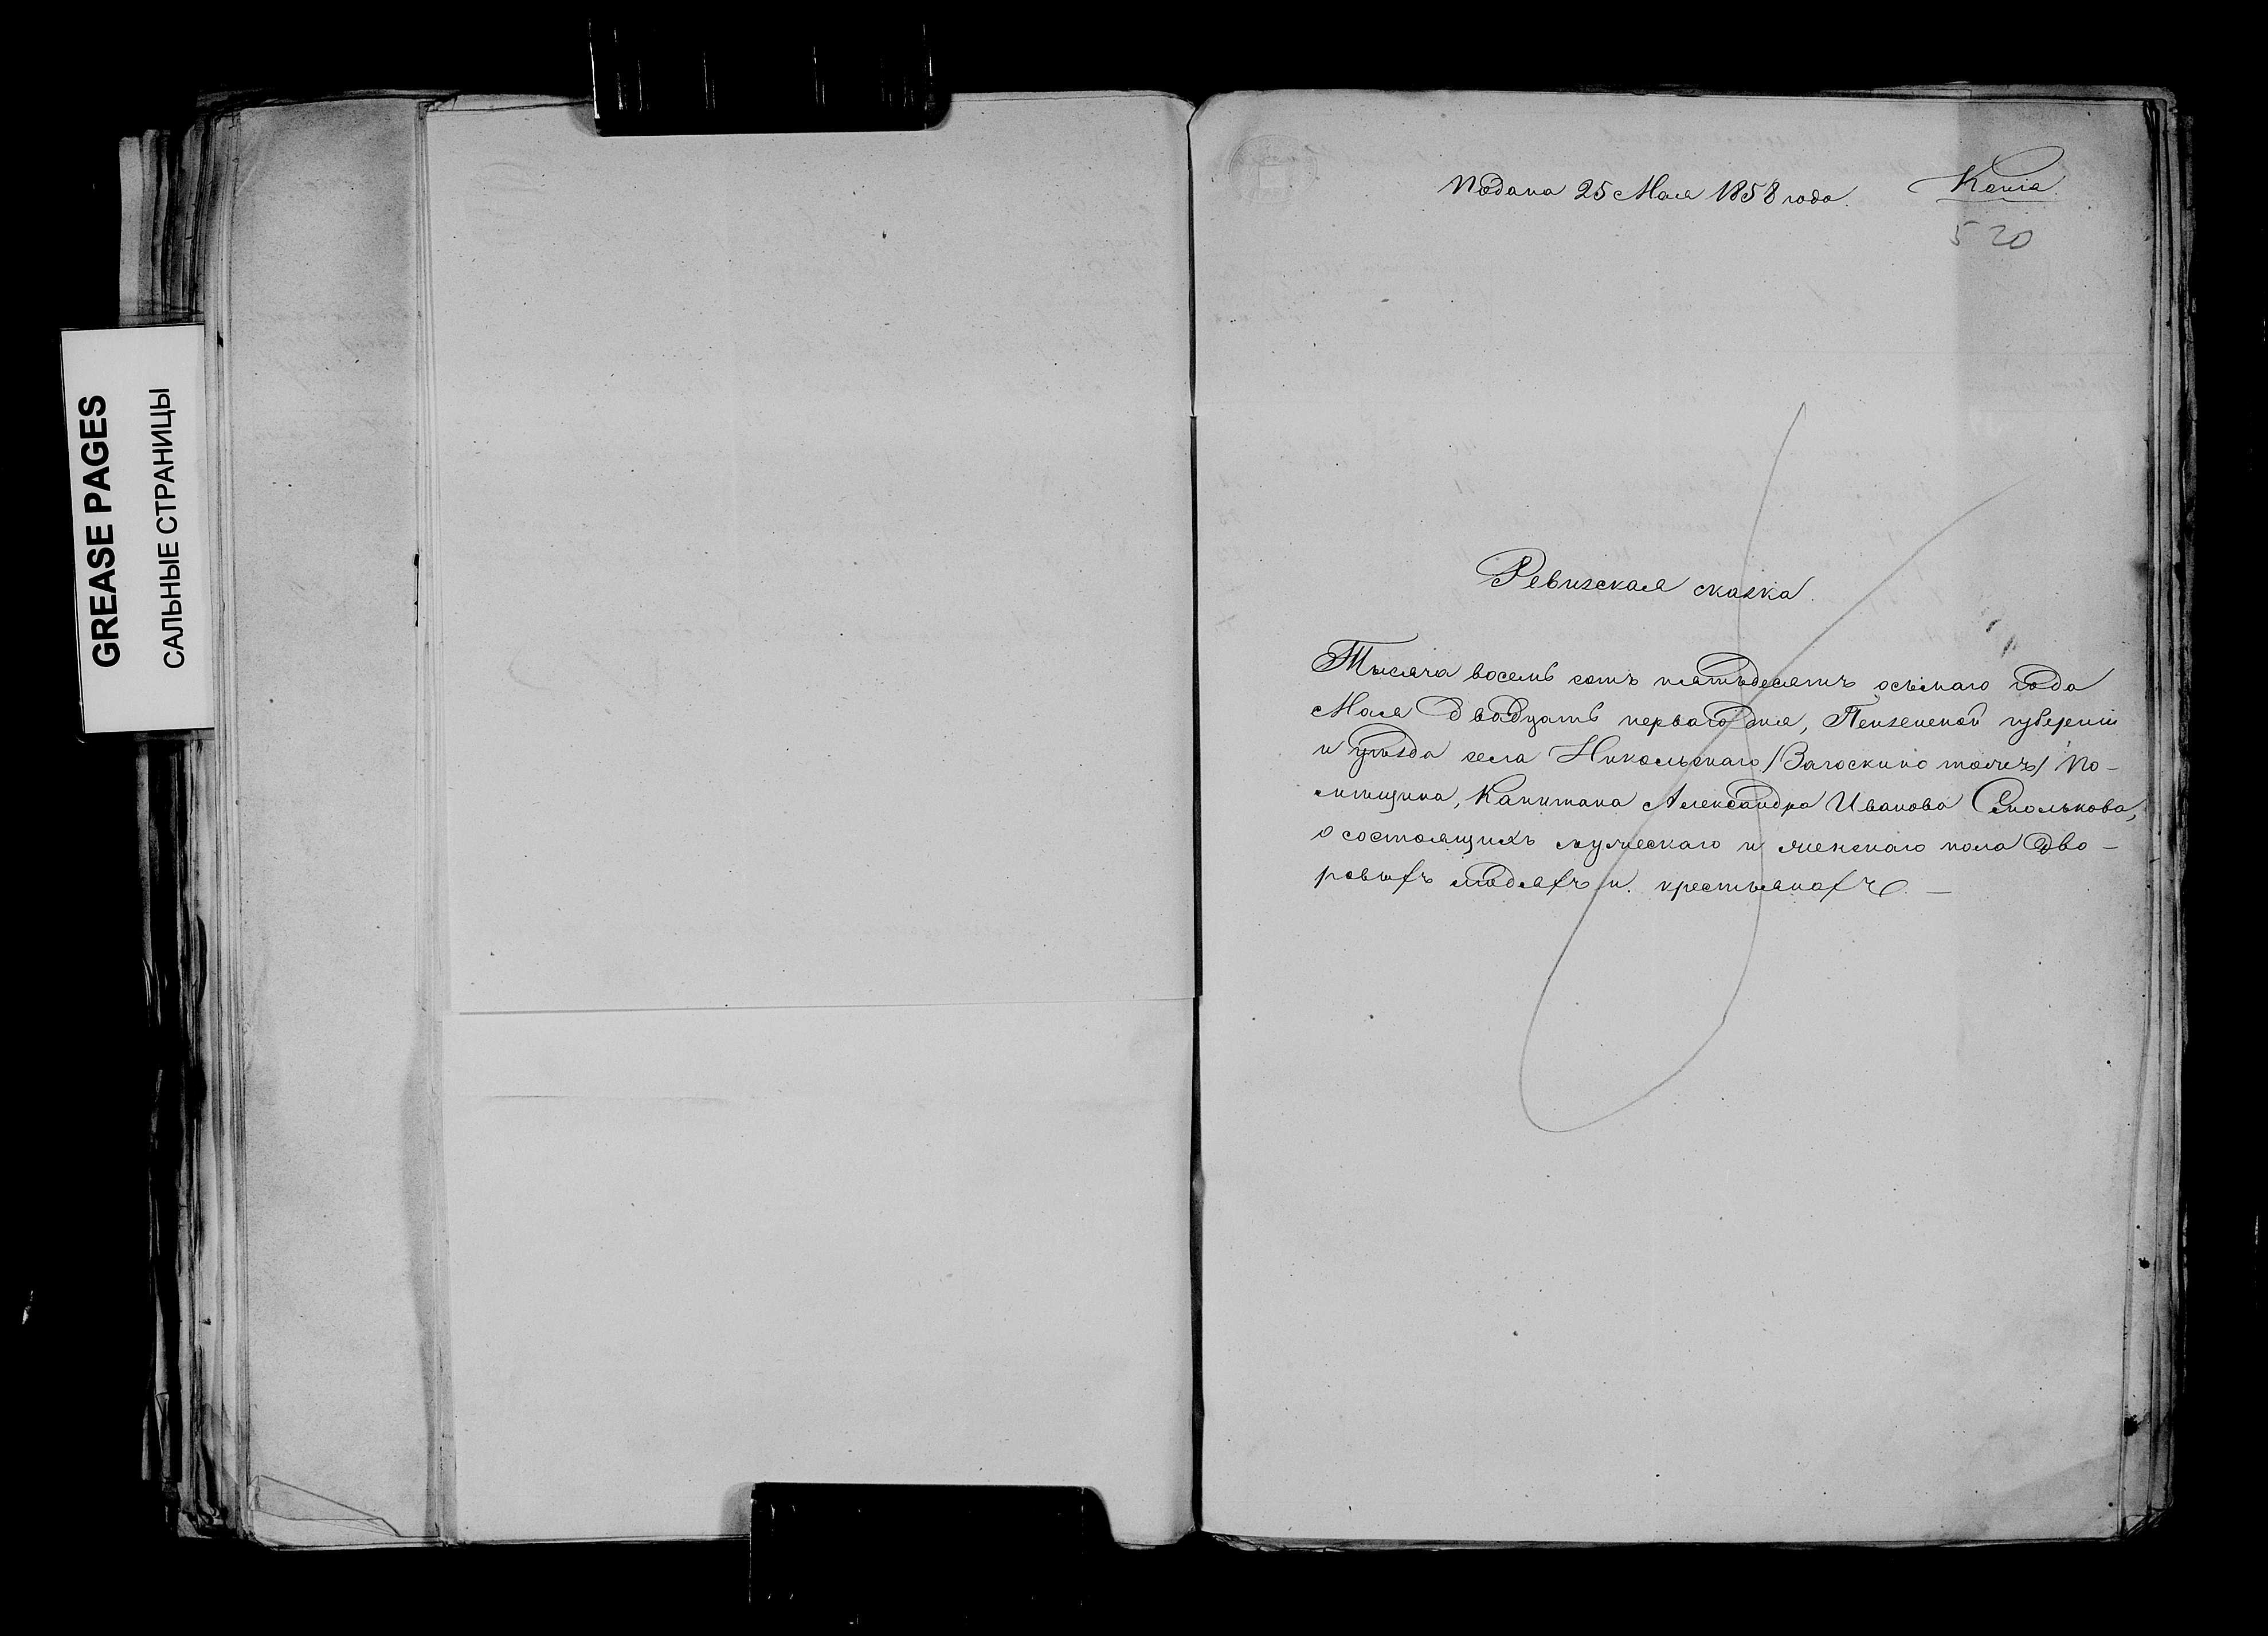 GREASE PAGES
САЛЬНЫЕ СТРАНИЦЫ
Подана 25 Мая 1858 года. Копія.
520
Ревизская сказка.
Тысяча восемь сотъ пятьдесятъ осьмаго года
Мая двадцать перваго дня, Пензенской губерніи
и уѣзда села Никольскаго /Загоскино тожъ/ По-
мѣщика, Капитана Александра Иванова Смолькова,
о состоящихъ мужескаго и женскаго пола дво-
ровыхъ людяхъ и крестьянахъ. —